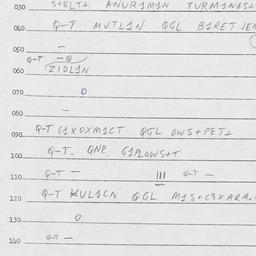 030 S+ELT+ ANUR1M1N TURM1N1S+
040 Q-T MVTL1N QGL B1RET JEN
050 —
Q-T — Q
060 Z1DL1N
070 O
080 —
090 Q-T G1XOXM1CT QGL OWS+PET+
100 Q-T- QNP. G1PLOWS+T
110 Q-T — III Q-T —
120 Q-T KUL1CN QGL M1S+C3XARA.
130 O
140 Q-T —